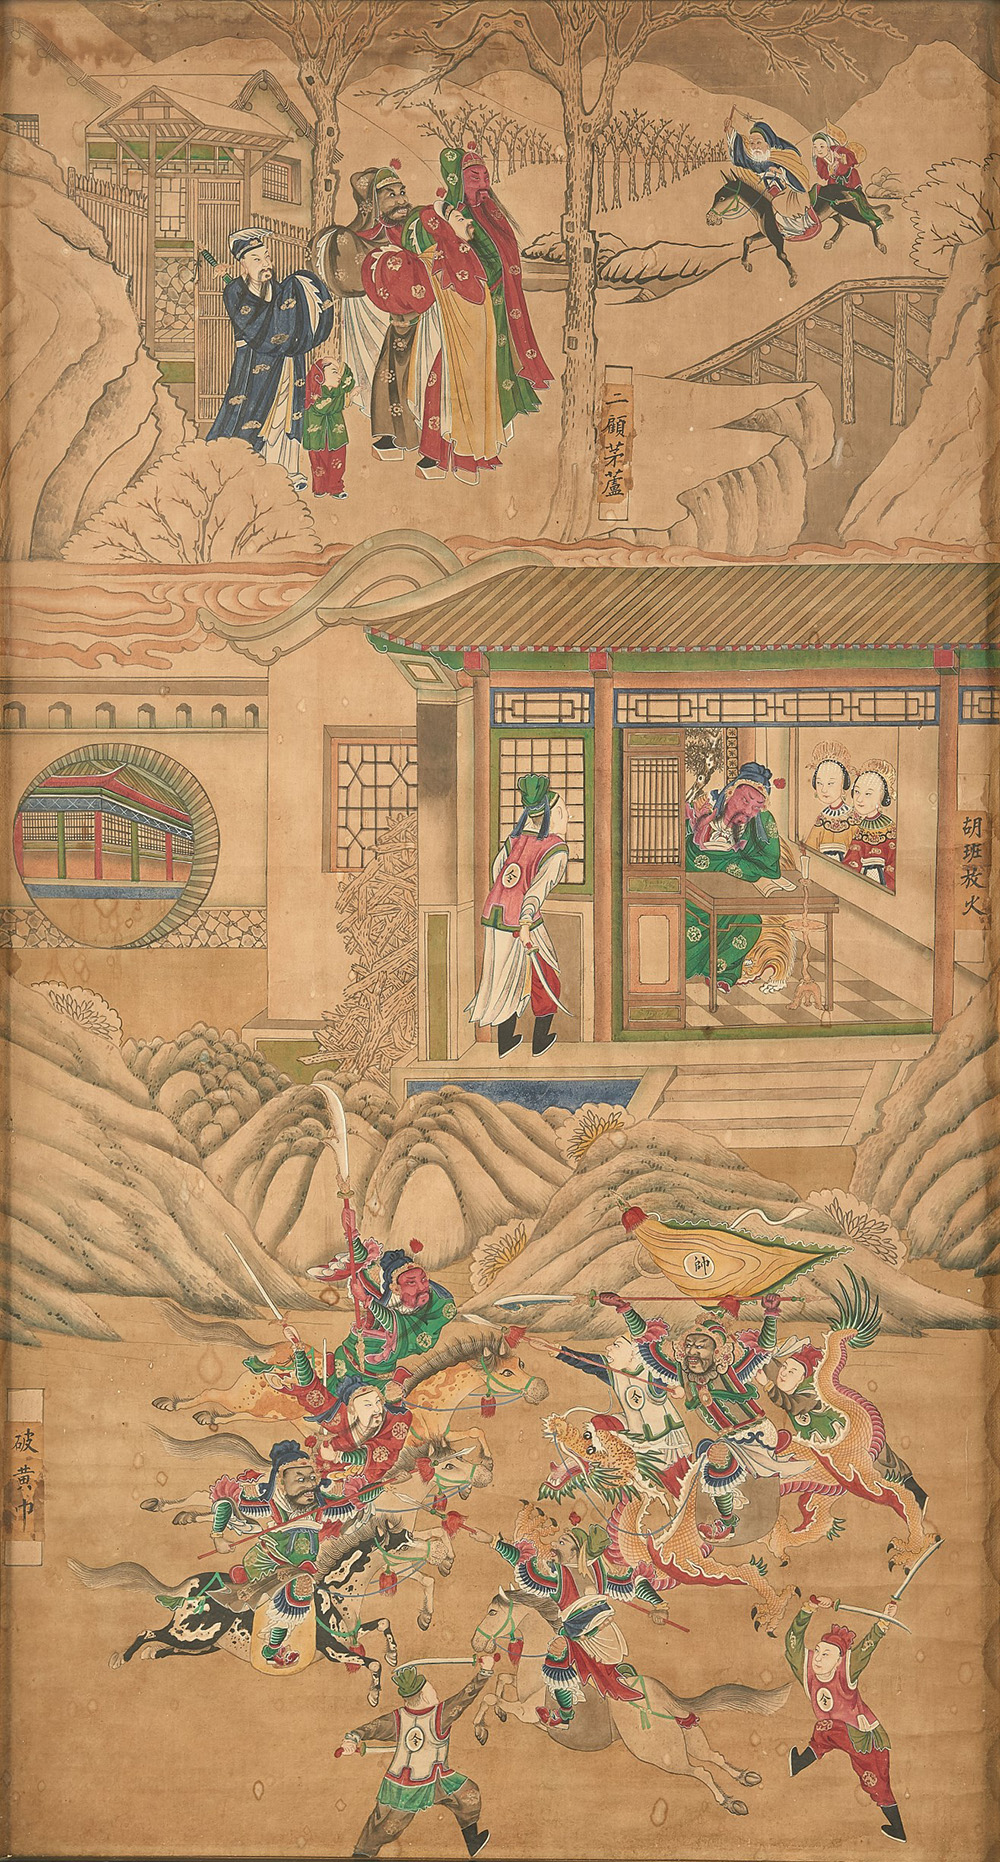 二顧茅蘆
胡班放火
令
帥
令
令
破黃巾
令
令